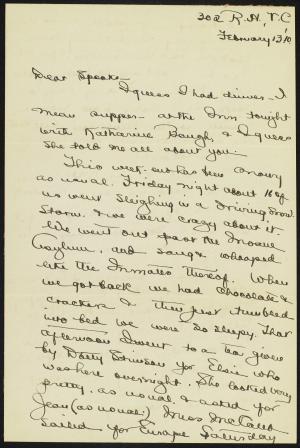 302 R.H., T.C
February 13/10
Dear Speake-
I guess I had dinner - I
mean supper - at the Inn tonight
with Katharine Baugh, & I guess
she told me all about you.
This week-end has been snowy
as usual. Friday night about 16 of
us went Sleighing in a driving Snow
Storm. & we were crazy about it.
We went out past the Insane
Asylum, and sang & whooped
like the Inmates thereof. When
we got back we had chocolate &
crackers & then just tumbled
into bed we were so sleepy. That
afternoon I went to a tea given
by Dolly Stinson for Elsie who
was here overnight. She looked very
pretty, as usual, & asked for
Jean (as usual) Miss McCaleb
sailed for Europe Saturday